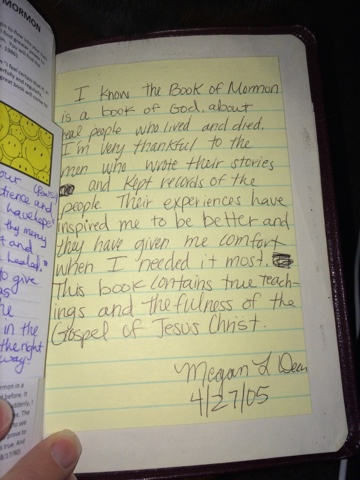 MORMON
I know the Book of Mormon
is a book of God, about
real people who lived and died.
I'm very thankful to the
men who wrote their stories
and kept records of the
people. Their experiences have
inspired me to be better and
they have given me comfort
when I needed it most.
This book contains true teach-
ings and the fulness of the
Gospel of Jesus Christ.
Megan L Dean
4/27/05
our
tience and
havelope
thy mercy
t and
healed."
to give
as
he
in the
the right
way?